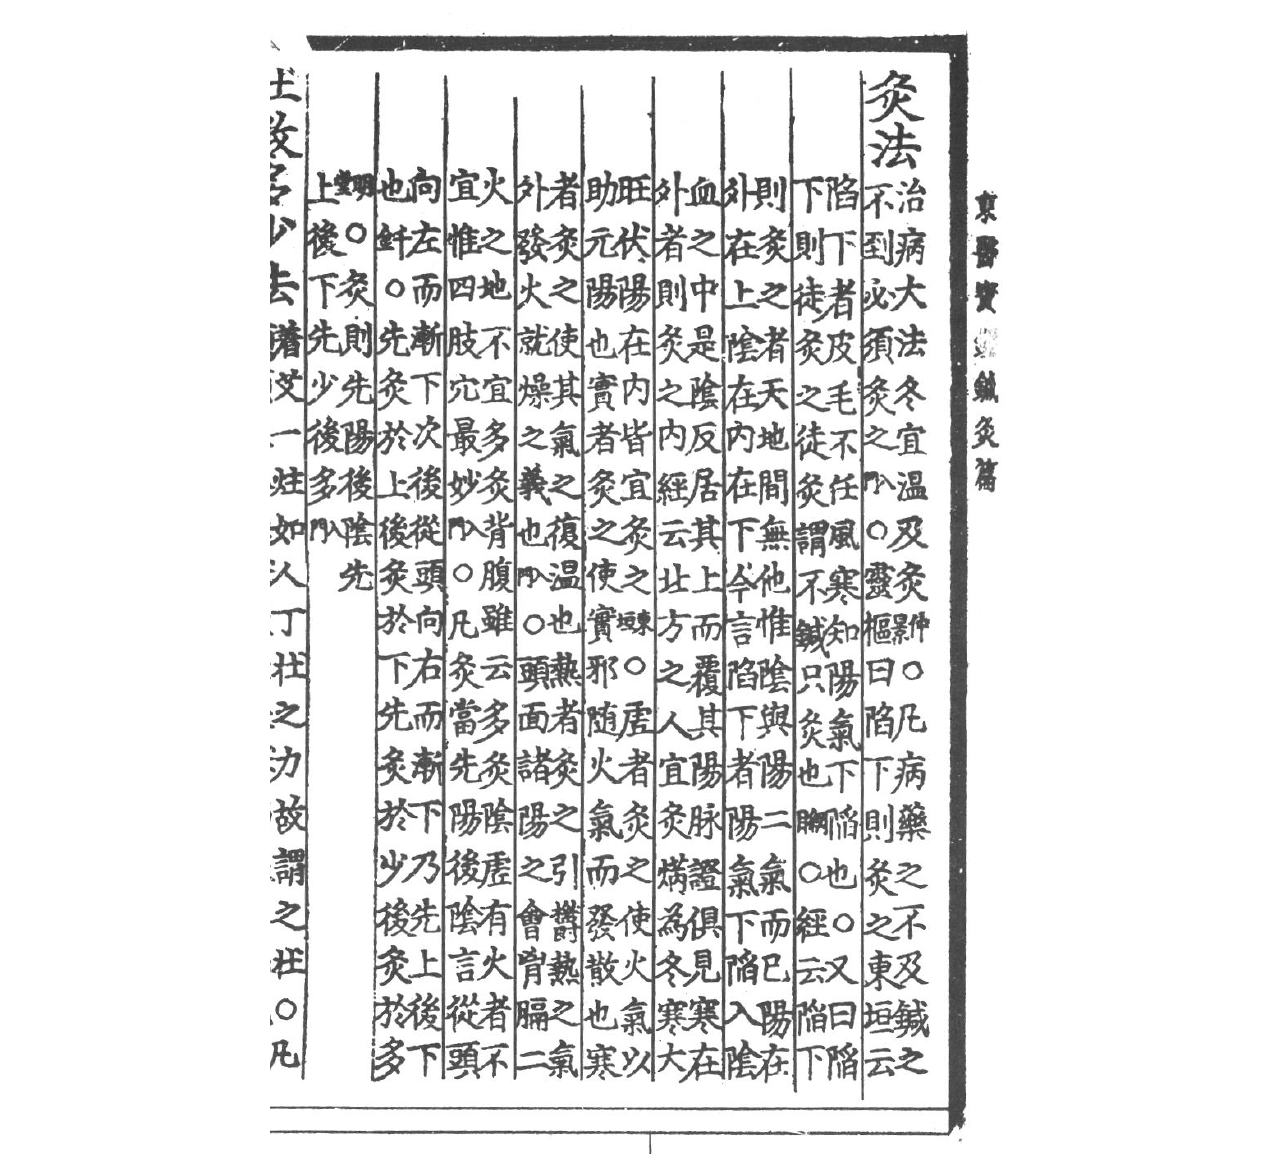 東醫寶 鍼灸篇
灸法
治病大法冬宜温及灸仲景○凡病藥之不及鍼之
不到必須灸之入門○靈樞曰陷下則灸之東垣云
陷下者皮毛不任風寒知陽氣下陷也○又曰陷
下則徒灸之徒灸謂不鍼只灸也綱目○經云陷下
則灸之者天地間無他惟陰與陽二氣而已陽在
外在上陰在内在下今言陷下者陽氣下陷入陰
血之中是陰反居其上而覆其陽脉證俱見寒在
外者則灸之内經云北方之人宜灸焫為冬寒大
旺伏陽在内皆宜灸之東垣○虛者灸之使火氣以
助元陽也實者灸之使實邪随火氣而發散也寒
者灸之使其氣之復温也熱者灸之引欝熱之氣
外發火就燥之義也入門○頭面諸陽之會胷膈二
火之地不宜多灸背腹雖云多灸陰虛有火者不
宜惟四肢穴最妙入門○凡灸當先陽後陰言從頭
向左而漸下次後從頭向右而漸下乃先上後下
也千金○先灸於上後灸於下先灸於少後灸於多
明堂○灸則先陽後陰先
上後下先少後多入門
壯數多少法
著艾一炷如人丁壯之力故謂之壯○凡